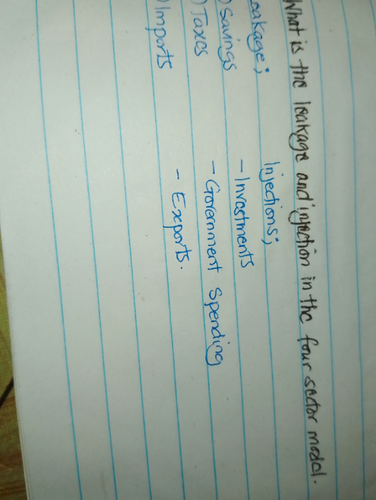 What is the leakage and injection in the four sector model.
eakage; Injections;
) Savings - Investments
) Taxes - Government Spending
) Imports - Exports.